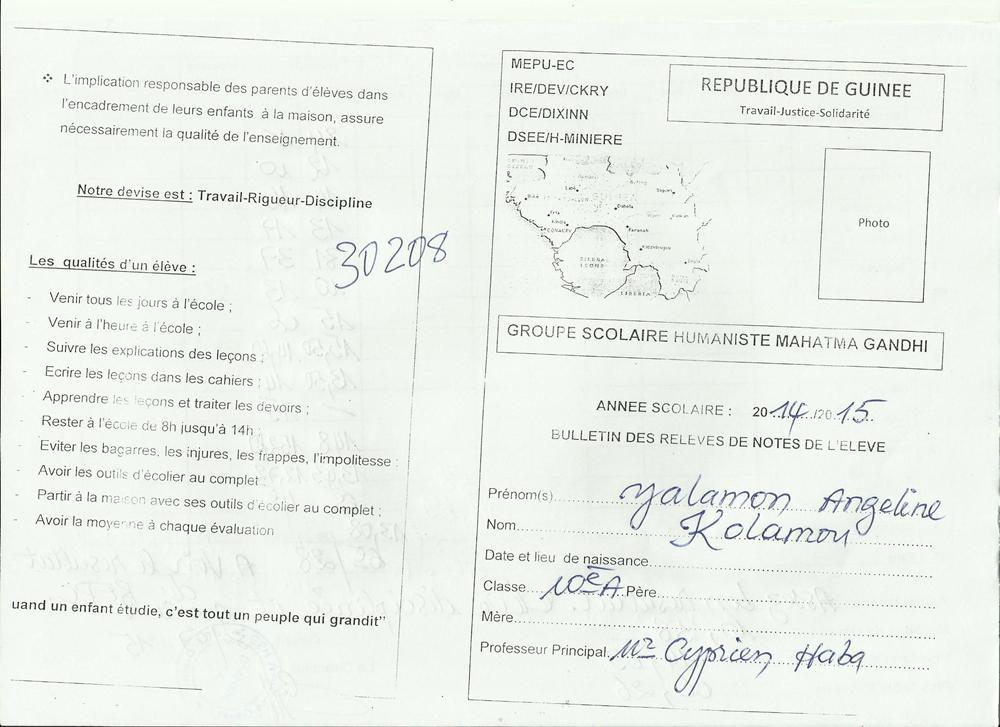 ❖ L'implication responsable des parents d'élèves dans
l'encadrement de leurs enfants à la maison, assure
nécessairement la qualité de l'enseignement.
Notre devise est : Travail-Rigueur-Discipline
30208
Les qualités d'un élève :
- Venir tous les jours à l'école ;
- Venir à l'heure à l'école ;
- Suivre les explications des leçons ;
- Ecrire les leçons dans les cahiers ;
- Apprendre les leçons et traiter les devoirs ;
- Rester à l'école de 8h jusqu'à 14h ;
- Eviter les bagarres, les injures, les frappes, l'impolitesse ;
- Avoir les outils d'écolier au complet ;
- Partir à la maison avec ses outils d'écolier au complet ;
- Avoir la moyenne à chaque évaluation
uand un enfant étudie, c'est tout un peuple qui grandit"
MEPU-EC
IRE/DEV/CKRY
DCE/DIXINN
DSEE/H-MINIERE
REPUBLIQUE DE GUINEE
Travail-Justice-Solidarité
Photo
GROUPE SCOLAIRE HUMANISTE MAHATMA GANDHI
ANNEE SCOLAIRE : 2014/2015
BULLETIN DES RELEVES DE NOTES DE L'ELEVE
Prénom(s) Yalamon Angeline
Nom Kolamou
Date et lieu de naissance
Classe 10e A Père
Mère
Professeur Principal Mr Cyprien Haba